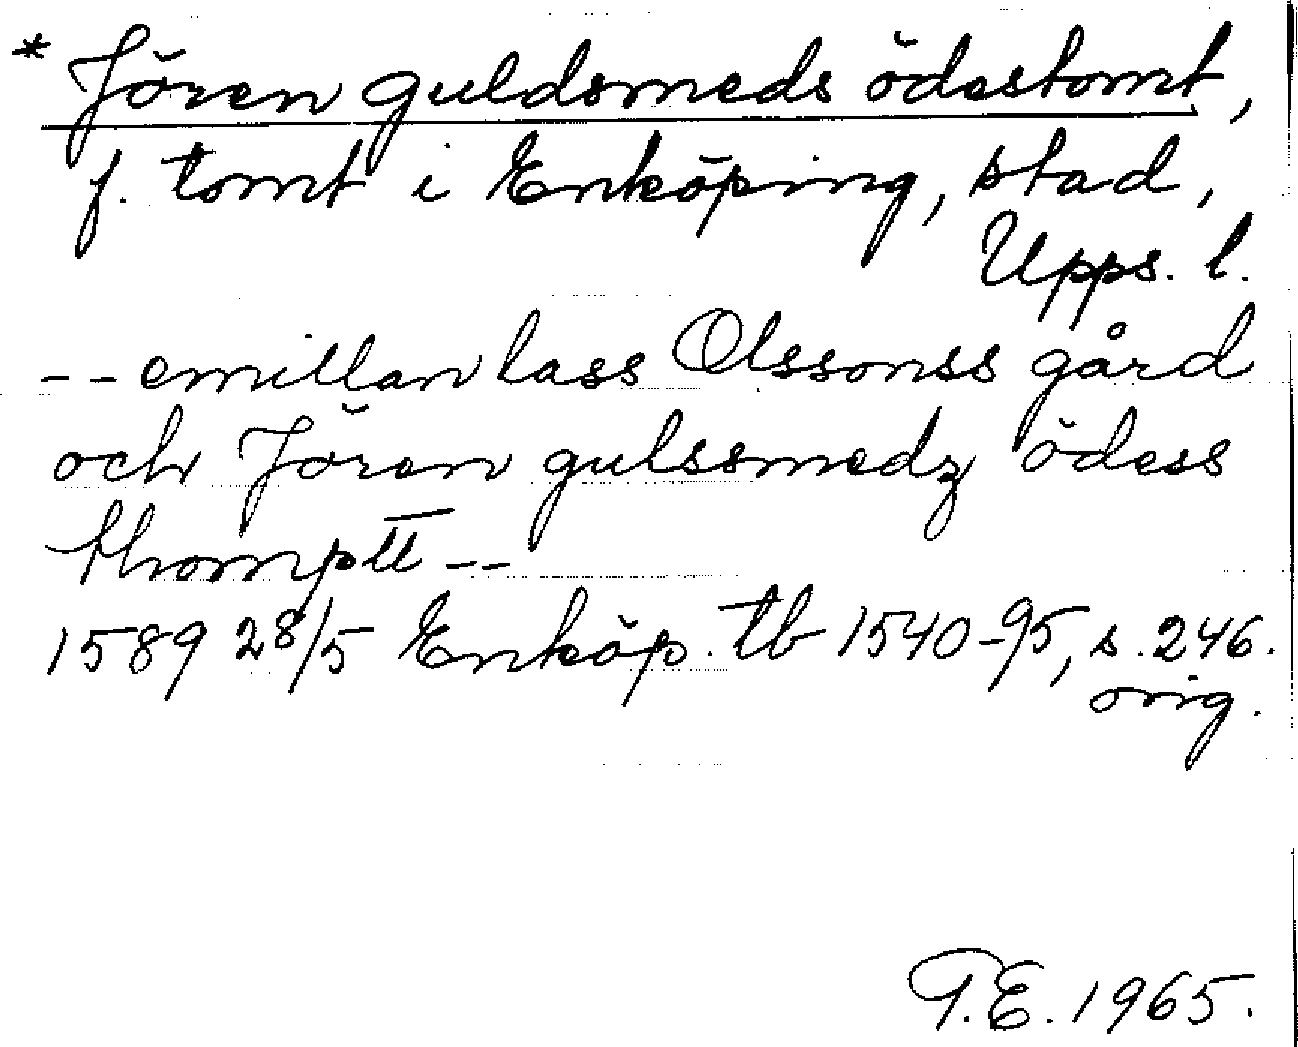 * Jören guldsmeds ödestomt,
f. tomt i Enköping, stad,
Upps. l.
-- emillan lass Olssonss gård
och Jören gulssmedz ödess
thomptt --
1589 28/5 Enköp. tb 1540-95, s. 246.
orig.
T.E. 1965.